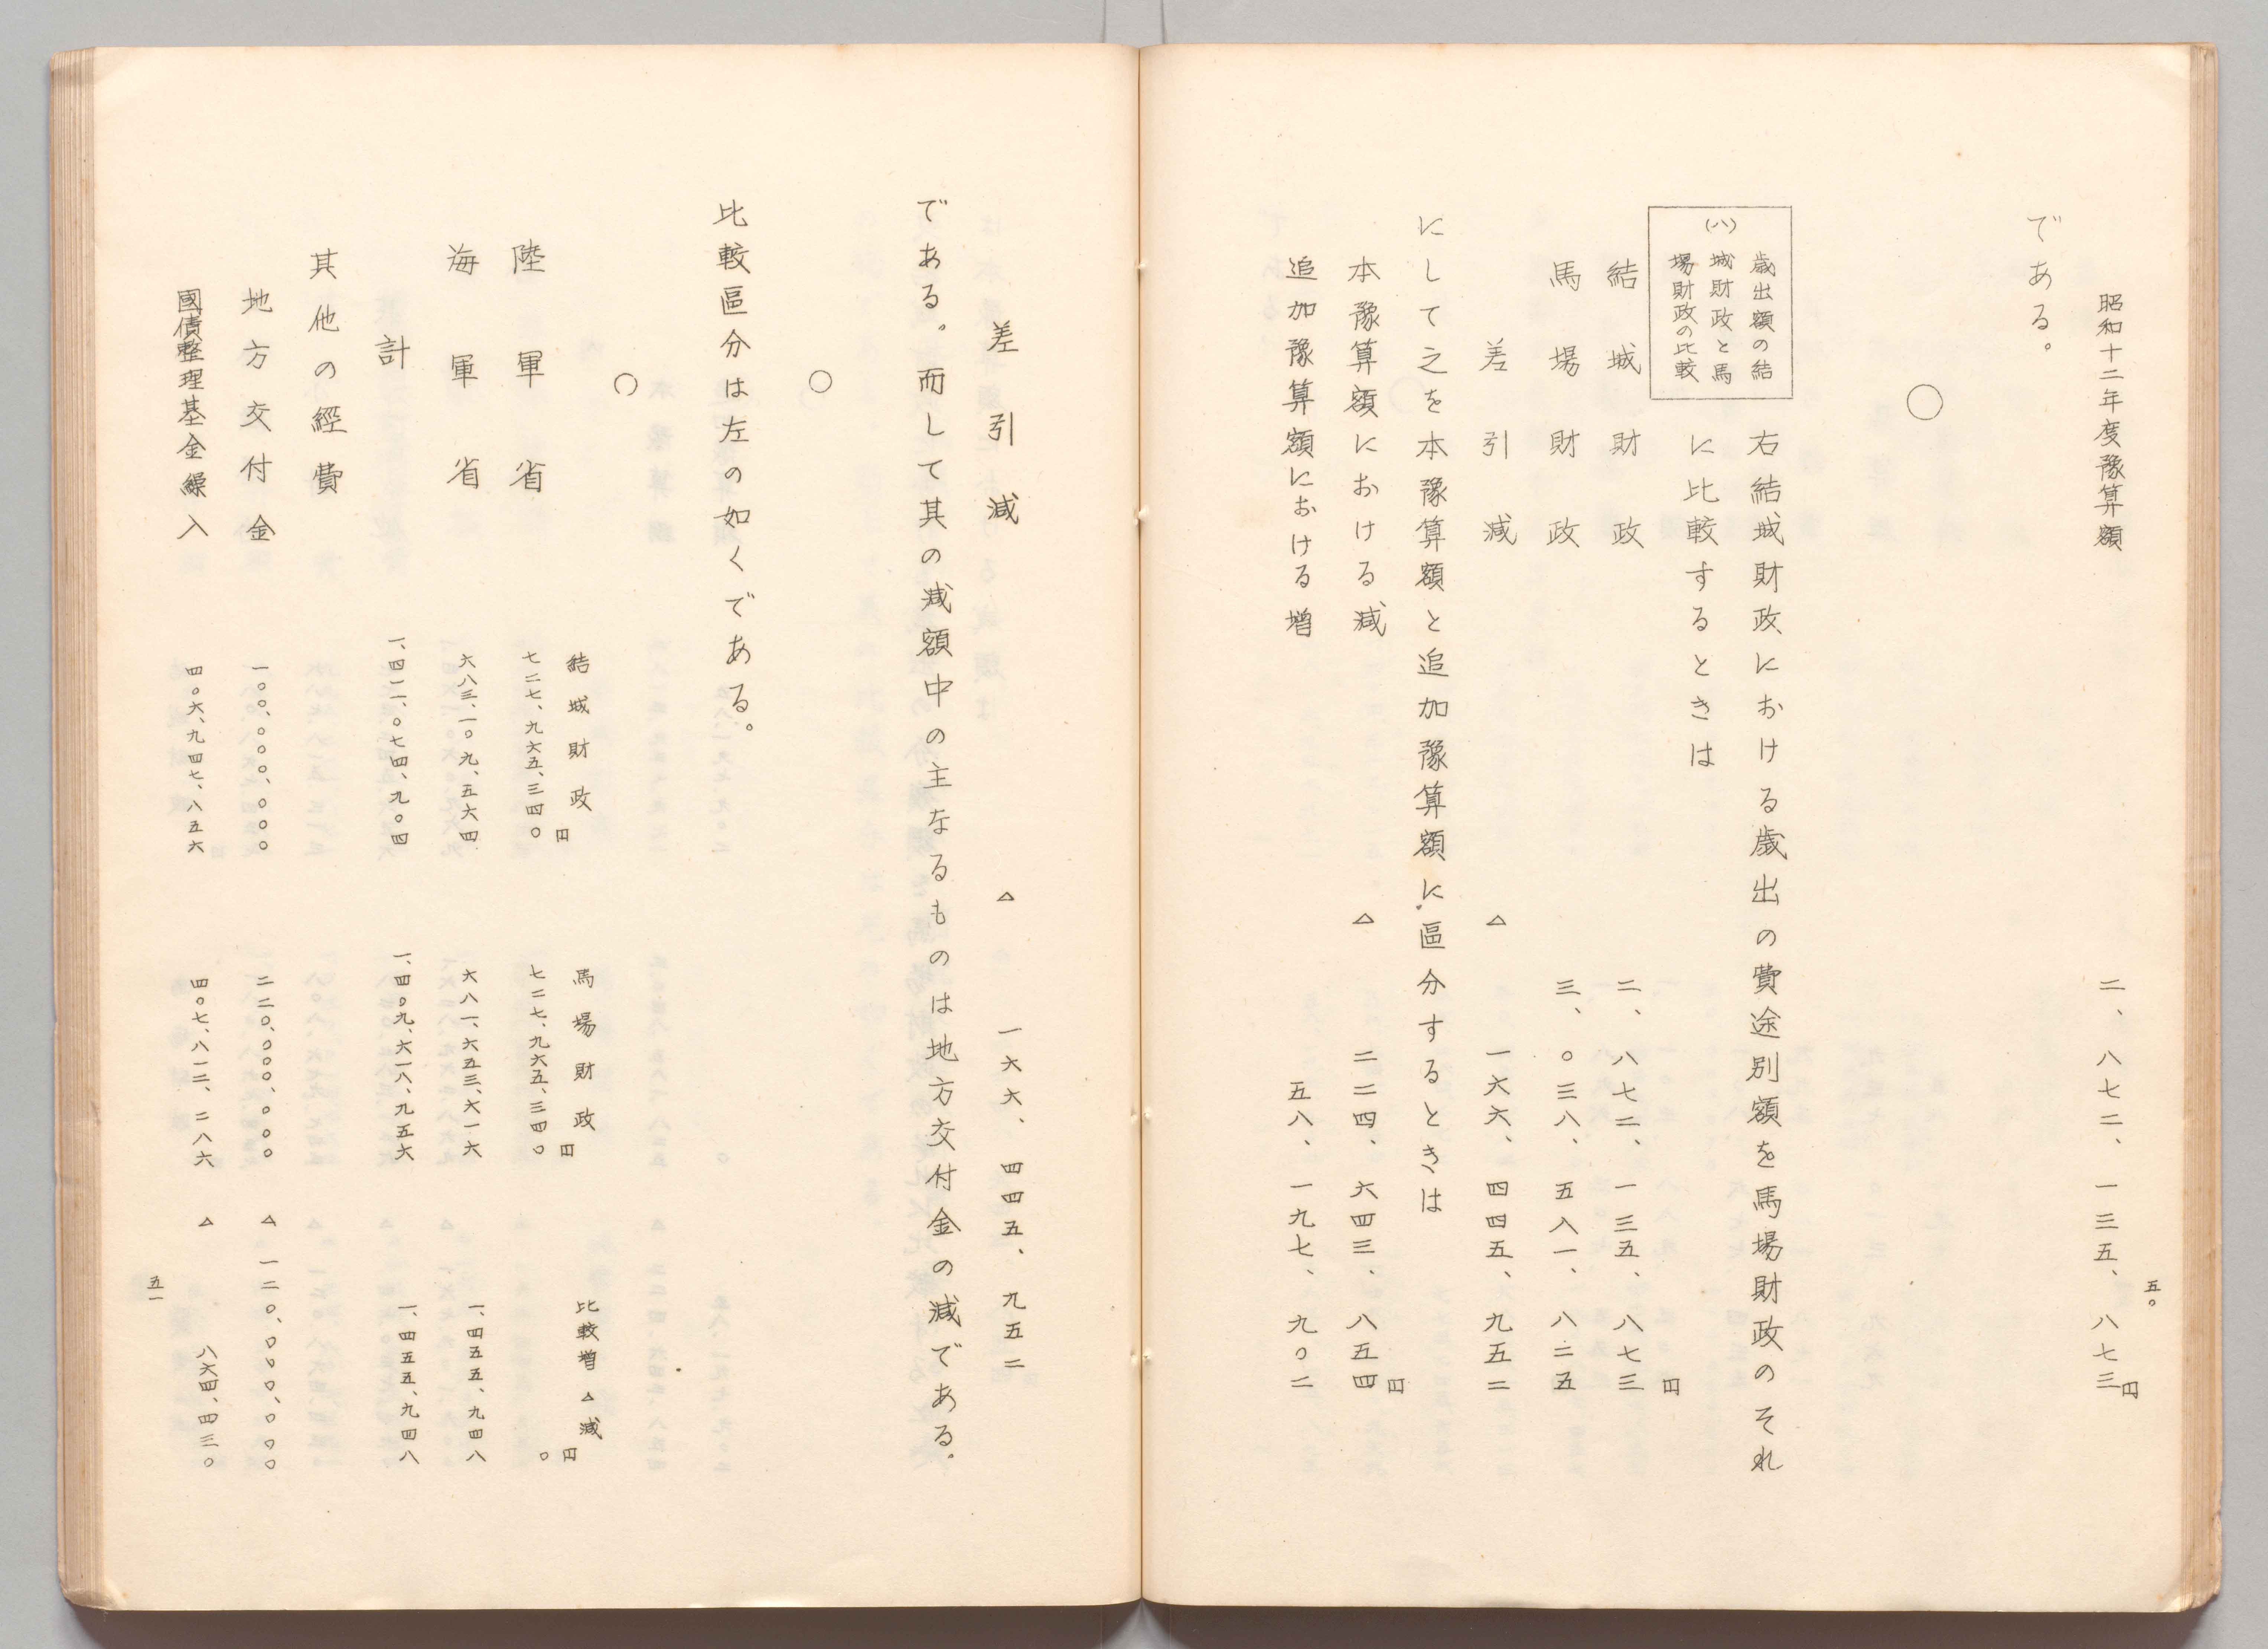 昭和十二年度豫算額 二、八七二、一三五、八七三円
五〇
である。
○
(八)
歳出額の結
城財政と馬
場財政の比較
右結城財政における歳出の費途別額を馬場財政のそれ
に比較するときは
結城財政 二、八七二、一三五、八七三円
馬場財政 三、〇三八、五八一、八二五
差引減 △ 一六六、四四五、九五二
にして之を本豫算額と追加豫算額に區分するときは
本豫算額における減 △ 二二四、六四三、八五四円
追加豫算額における増 五八、一九七、九〇二
差引減 △ 一六六、四四五、九五二
である。而して其の減額中の主なるものは地方交付金の減である。
○
比較區分は左の如くである。
○
結城財政 馬場財政 比較増△減
陸軍省 七二七、九六五、三四〇円 七二七、九六五、三四〇円 〇円
海軍省 六八三、一〇九、五六四 六八一、六五三、六一六 一、四五五、九四八
計 一、四一一、〇七四、九〇四 一、四〇九、六一八、九五六 一、四五五、九四八
其他の經費
地方交付金 一〇〇、〇〇〇、〇〇〇 二二〇、〇〇〇、〇〇〇 △ 一二〇、〇〇〇、〇〇〇
國債整理基金繰入 四〇六、九四七、八五六 四〇七、八一二、二八六 △ 八六四、四三〇
五一